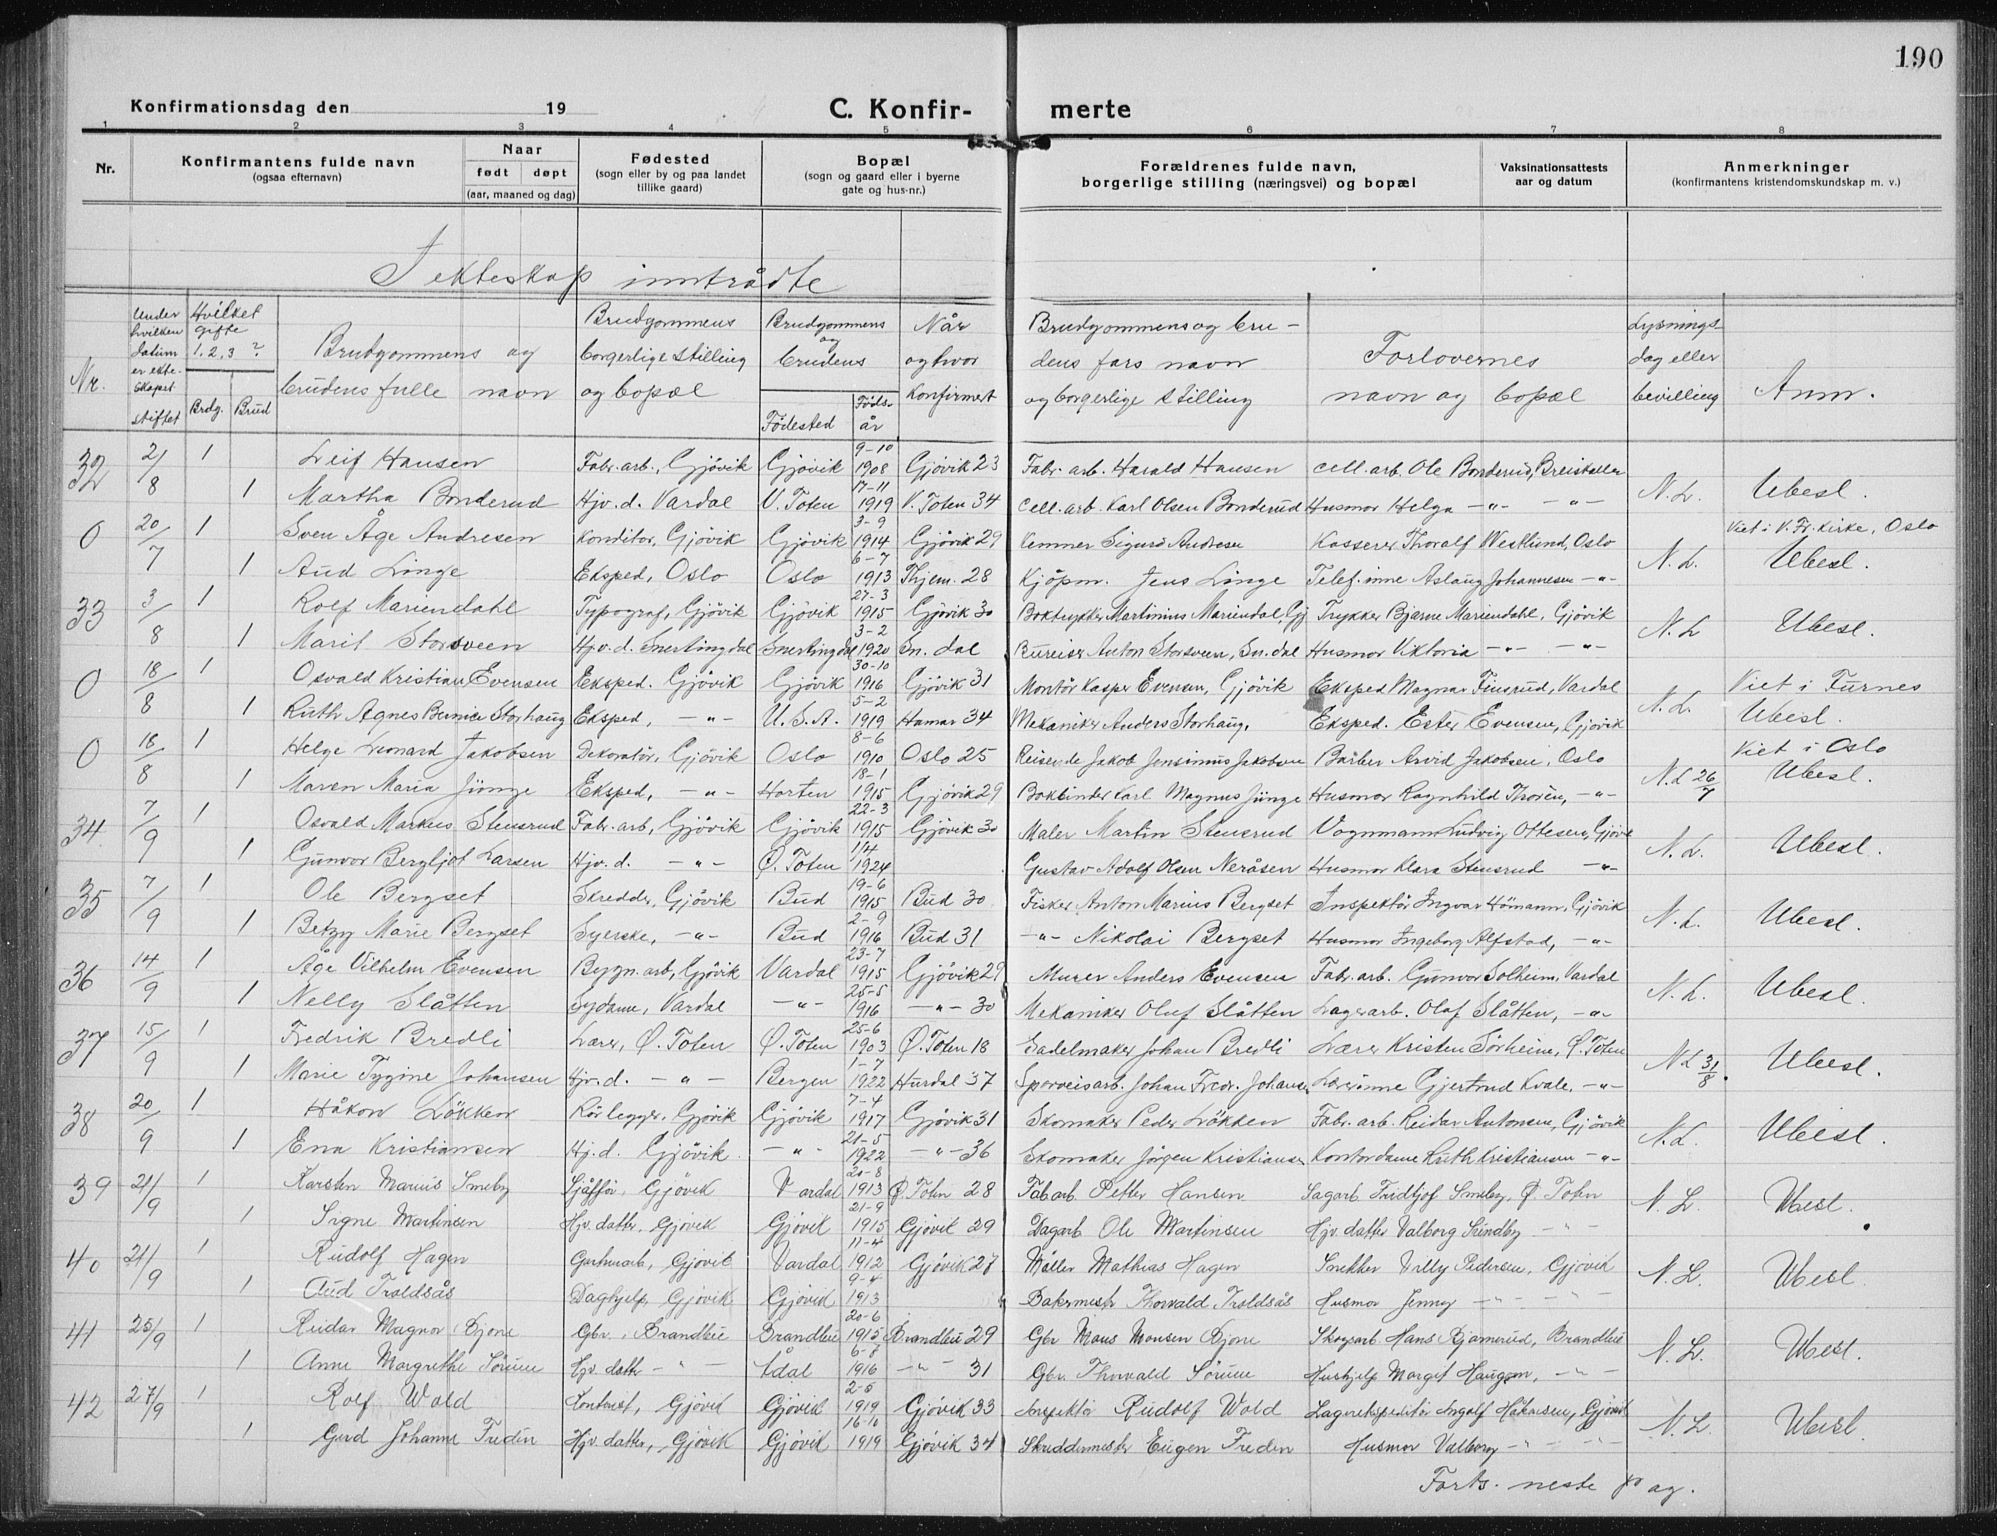 190
Konfirmationsdag den 19
C. Konfirmerte
1 2 3 4 5 6 7 8
Nr. Konfirmantens fulde navn (ogsaa efternavn) Naar født døpt (aar, maaned og dag) Fødested (sogn eller by og paa landet tillike gaard) Bopæl (sogn og gaard eller i byerne gate og hus-nr.) Forældrenes fulde navn, borgerlige stilling (næringsvei) og bopæl Vaksinationsattests aar og datum Anmerkninger (konfirmantens kristendomskundskap m. v.)
I ekteskap inntrådte
Nr. Under hvilken datum er ekteskapet stiftet Hvilket gifte 1, 2, 3? Brdg. Brud Brudgommens og brudens fulle navn Brudgommens borgerlige stilling og bopæl Brudgommens og brudens Fødested Føds. år Når og hvor konfirmert Brudgommens og brudens fars navn og borgerlige stilling Forlovernes navn og bopæl Lysningsdag eller bevilling Anm.
32 2/8 1 Leif Hansen Fabr. arb., Gjøvik Gjøvik 9-10 1908 Gjøvik 23 Fabr. arb. Harald Hansen Cell. arb. Ole Bonderud,
1 Martha Bonderud Hjv. d. Vardal V. Toten 17-11 1919 V. Toten 34 Cell. arb. Karl Olsen Bonderud Husmor Helga -"- -"- N. L. Ubesl.
0 20/7 1 Sven Åge Andresen Konditor, Gjøvik Gjøvik 3-9 1914 Gjøvik 29 Kemner Sigurd Andresen Kasserer Thoralf Westlund, Oslo Viet i V. Fr. kirke, Oslo
1 Aud Linge Eksped, Oslo Oslo 6-7 1913 Thjem. 28 Kjøpm. Jens Linge Telef. inne Aslaug Johannesen -"- N. L. Ubesl.
33 3/8 1 Rolf Mariendahl Typograf, Gjøvik Gjøvik 27-3 1915 Gjøvik 30 Boktrykker Martinius Mariendal, Gj Trykker Bjarne Mariendahl, Gjøvik
1 Marit Storsveen Hjv. d. Snertingdal Snertingdal 3-2 1920 Sn. dal Bureiser Anton Storsveen, Sn. dal Husmor Viktoria -"- -"- N. L Ubesl.
0 18/8 1 Osvald Kristian Evensen Eksped. Gjøvik Gjøvik 30-10 1916 Gjøvik 31 Montør Kasper Evensen, Gjøvik Eksped Magnar Finsrud, Vardal Viet i Furnes
1 Ruth Agnes Bernice Storhaug Eksped, -"- U. S. A. 5-2 1919 Hamar 34 Mekaniker Anders Storhaug, Eksped. Ester Evensen, Gjøvik N. L. Ubesl.
0 18/8 1 Helge Leonard Jakobsen Dekoratør, Gjøvik Oslo 8-6 1910 Oslo 25 Reisende Jakob Jensinius Jakobsen Barber Arvid Jakobsen, Oslo Viet i Oslo
1 Maren Maria Jünge Eksped, -"- Horten 18-1 1915 Gjøvik 29 Bokbinder Karl Magnus Jünge Husmor Ragnhild Thorén, -"- N. L 26/7 Ubesl.
34 7/9 1 Osvald Markus Stensrud Fabr. arb, Gjøvik Gjøvik 22-3 1915 Gjøvik 30 Maler Martin Stensrud Vognmann Ludvig Ottesen, Gjøvik
1 Gunvor Bergljot Larsen Hjv. d. -"- Ø. Toten 1/4 1924 Gustav Adolf Olsen Neråsen Husmor Klara Stensrud -"- N. L. Ubesl.
35 7/9 1 Ole Bergset Skredder, Gjøvik Bud 19-6 1915 Bud 30 Fisker Anton Marius Bergset Inspektør Ingvar Hómann, Gjøvik
1 Betzy Marie Bergset Syerske, -"- Bud 2-9 1916 Bud 31 -"- Nikolai Bergset Husmor Ingeborg Alfstad, -"- N. L. Ubesl.
36 14/9 1 Åge Vilhelm Evensen Bygn. arb, Gjøvik Vardal 23-7 1915 Gjøvik 29 Murer Anders Evensen Fabr. arb. Gunvor Solheim, Vardal
1 Nelly Slåtten Sydame, Vardal -"- 25-5 1916 -"- 30 Mekaniker Oluf Slåtten Lagerarb. Olaf Slåtten, -"- N. L. Ubesl.
37 15/9 1 Fredrik Bredli Lærer, Ø. Toten Ø. Toten 25-6 1903 Ø. Toten 18 Sadelmaker Johan Bredli Lærer Kristen Sørheim, Ø. Toten
1 Marie Tygine Johansen Hjv. d. -"- Bergen 1-7 1922 Hurdal 37 Sporveisarb. Johan Fredr. Johansen Lærerinne Gjertrud Kvale, -"- N. L 31/8. Ubesl.
38 20/9 1 Håkon Løkken Rørlegger, Gjøvik Gjøvik 7-4 1917 Gjøvik 31 Skomaker Peder Løkken Fabr. arb. Reidar Antonsen, Gjøvik
1 Ena Kristiansen Hj. d. Gjøvik -"- 21-5 1922 -"- 36 Skomaker Jørgen Kristiansen Kontordame Ruth Kristiansen -"- N. L. Ubesl.
39 21/9 1 Karsten Marius Smeby Sjåffør, Gjøvik Vardal 20-8 1913 Ø Toten 28 Fab arb. Petter Hansen Sagarb. Fridtjof Smeby, Ø Toten
1 Signe Martinsen Hjv. datter, Gjøvik Gjøvik 21-9 1915 Gjøvik 29 Dagarb Ole Martinsen Hjv. datter Valborg Sundby -"- N. L. Ubesl.
40 21/9 1 Rudolf Hagen Gartnerarb, Gjøvik Vardal 11-4 1912 Gjøvik 27 Møller Mathias Hagen Snekker Villy Pedersen, Gjøvik
1 Aud Troldsås Daghjelp, Gjøvik Gjøvik 9-4 1913 Bakermester Thorvald Troldsås Husmor Jenny -"- -"- N. L. Ubesl.
41 25/9 1 Reidar Magnor Bjone Gbr., Brandbu Brandbu 20-6 1915 Brandbu 29 Gbr Mons Monsen Bjone Skogsarb Hans Bjørnerud, Brandbu
1 Anne Margrethe Sørum Hjv. datter -"- Ådal 6-8 1916 -"- 31 Gbr. Thorvald Sørum Hushjelp Margit Haugen, -"- N. L. Ubesl.
42 27/9 1 Rolf Wold Kontorist, Gjøvik Gjøvik 2-5 1919 Gjøvik 33 Inspektør Rudolf Wold Lagerekspeditør Ingolf Håkonsen, Gjøvik
1 Gerd Johanne Fredin Hjv. datter, Gjøvik Gjøvik 16-10 1919 Gjøvik 34 Skreddermester Eugen Fredin Husmor Valborg -"- -"- N. L. Ubesl.
Forts. neste pag.